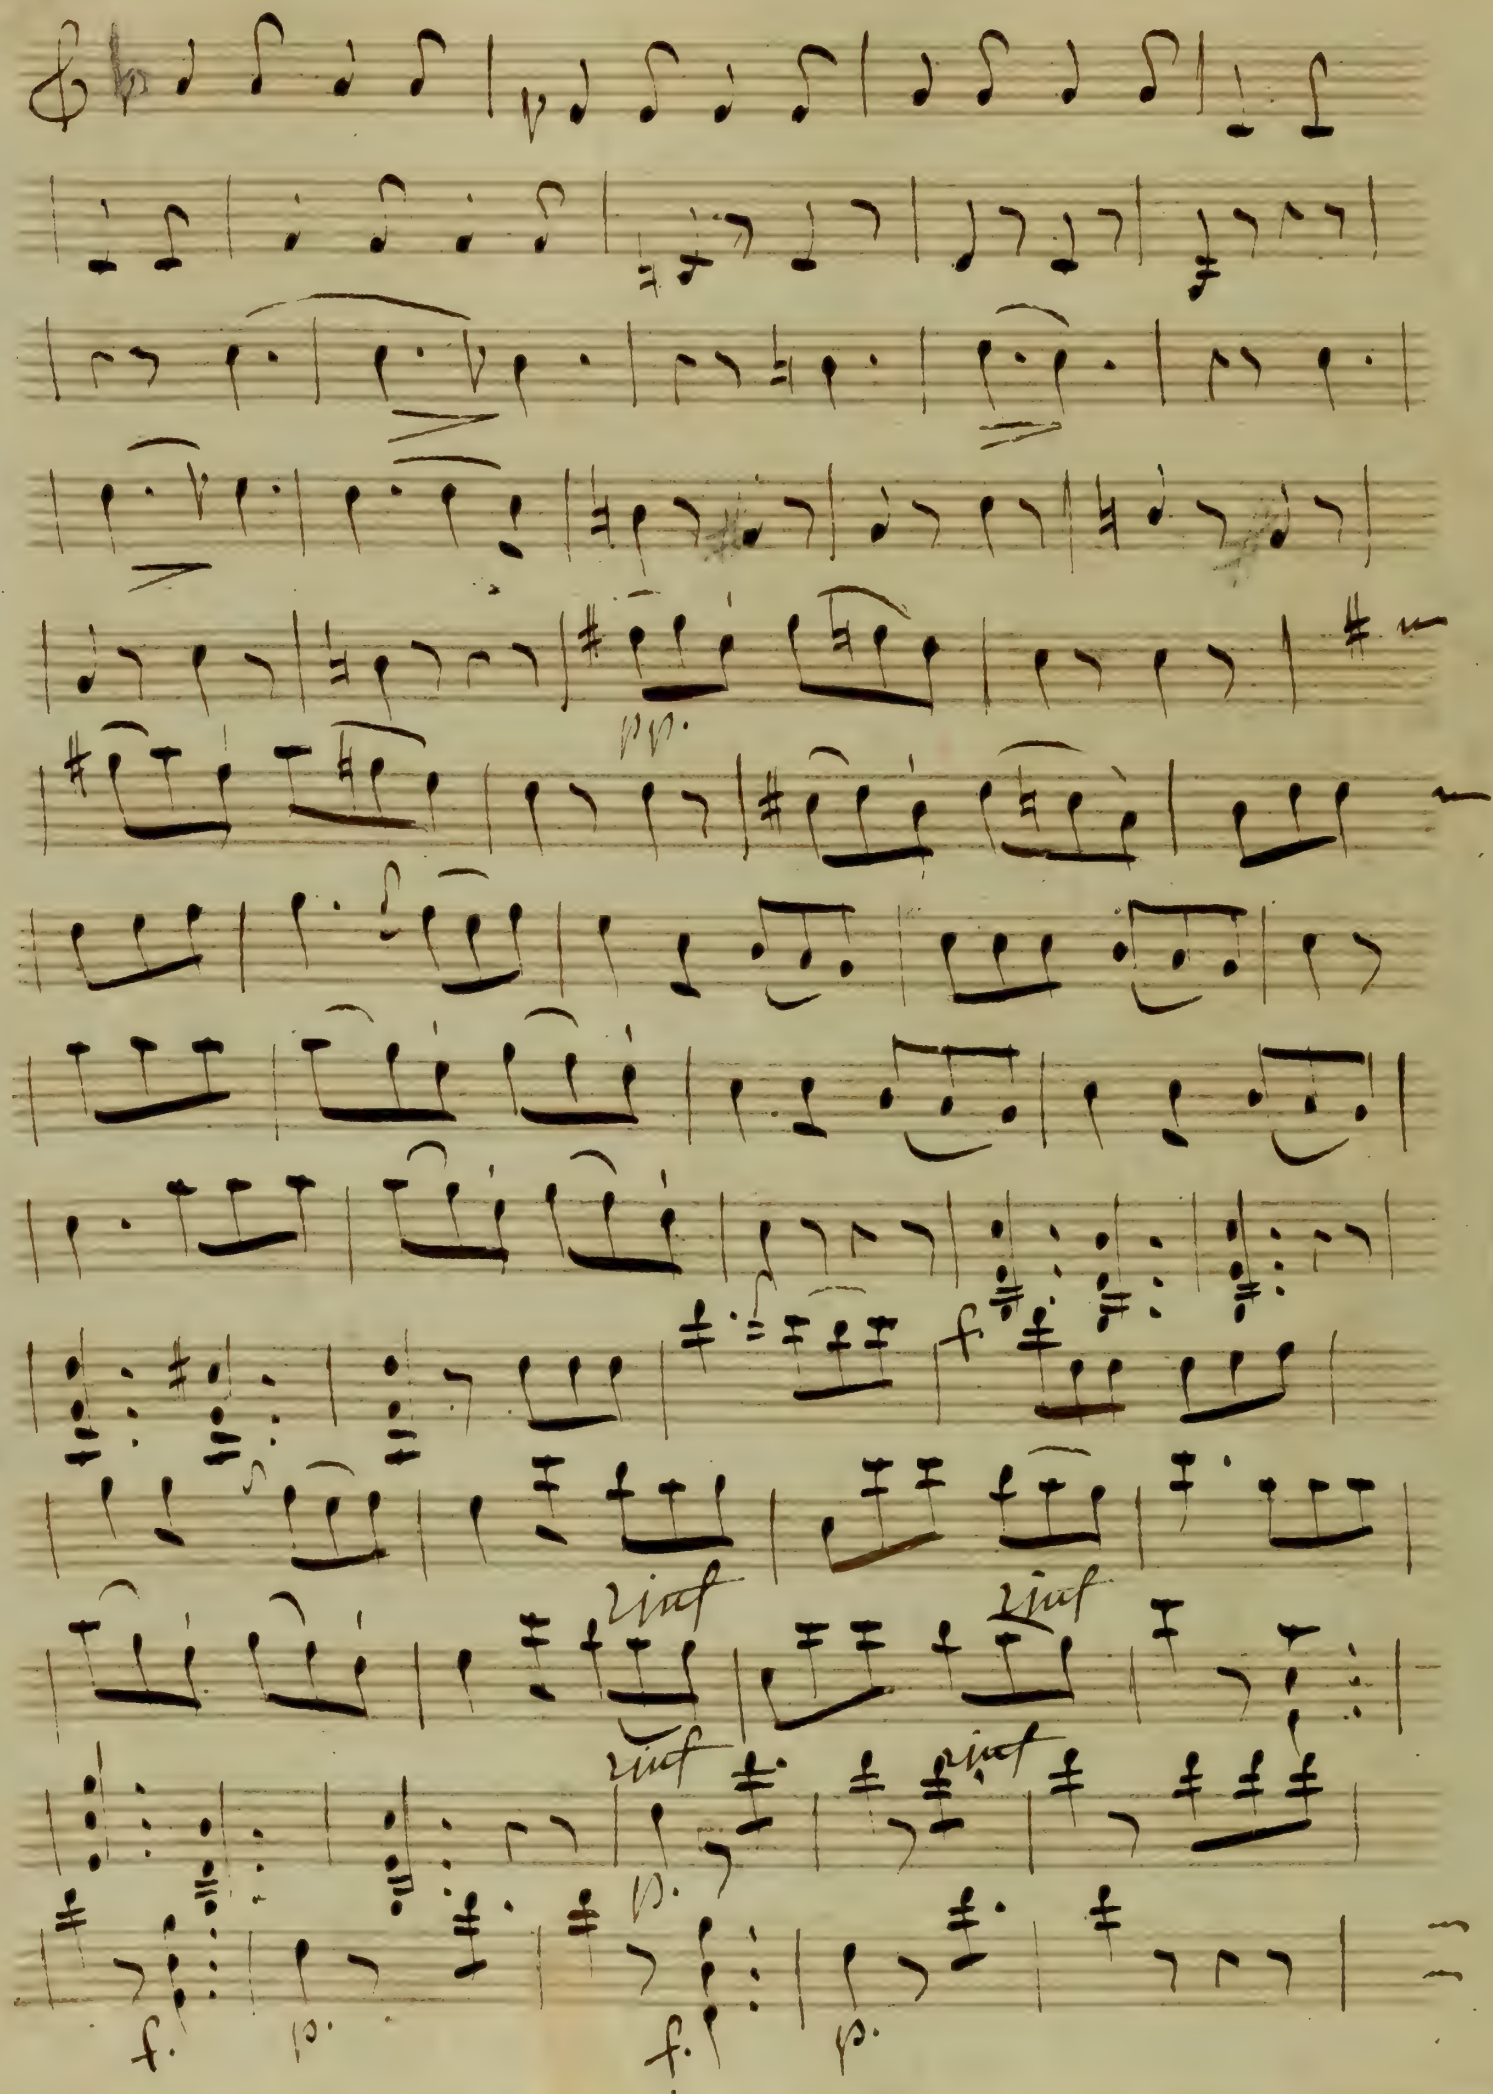 pp.
f
rinf rinf
rinf rinf
p.
f. p. f. p.